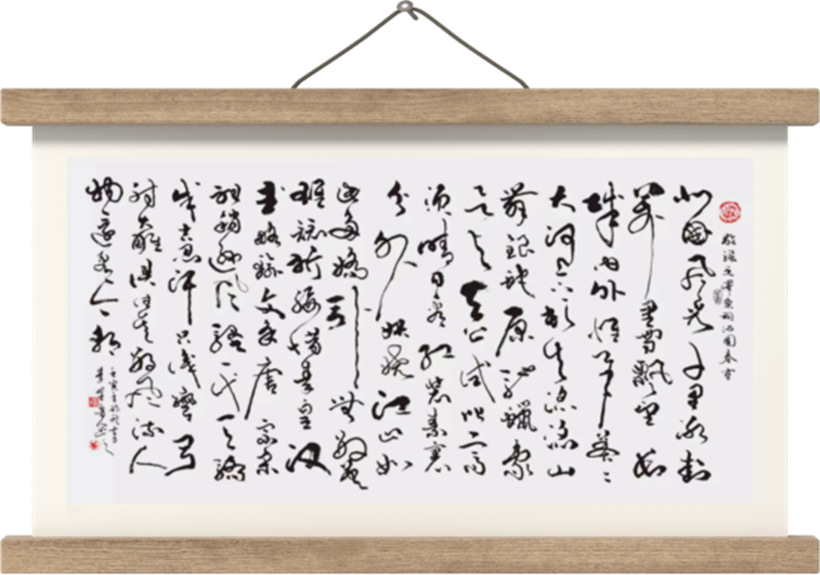 敬录毛泽东词沁园春雪
北国风光千里冰封
万里雪飘望长
城内外惟余莽〻
大河上下顿失滔滔山
舞银蛇原驰蜡象
欲与天公试比高
须晴日看红装素裹
分外妖娆江山如
此多娇引无数英
雄竞折腰惜秦皇汉
武略输文采唐宗宋
祖稍逊风骚一代天骄
成吉思汗只识弯弓
射大雕俱往矣数风流人
物还看今朝